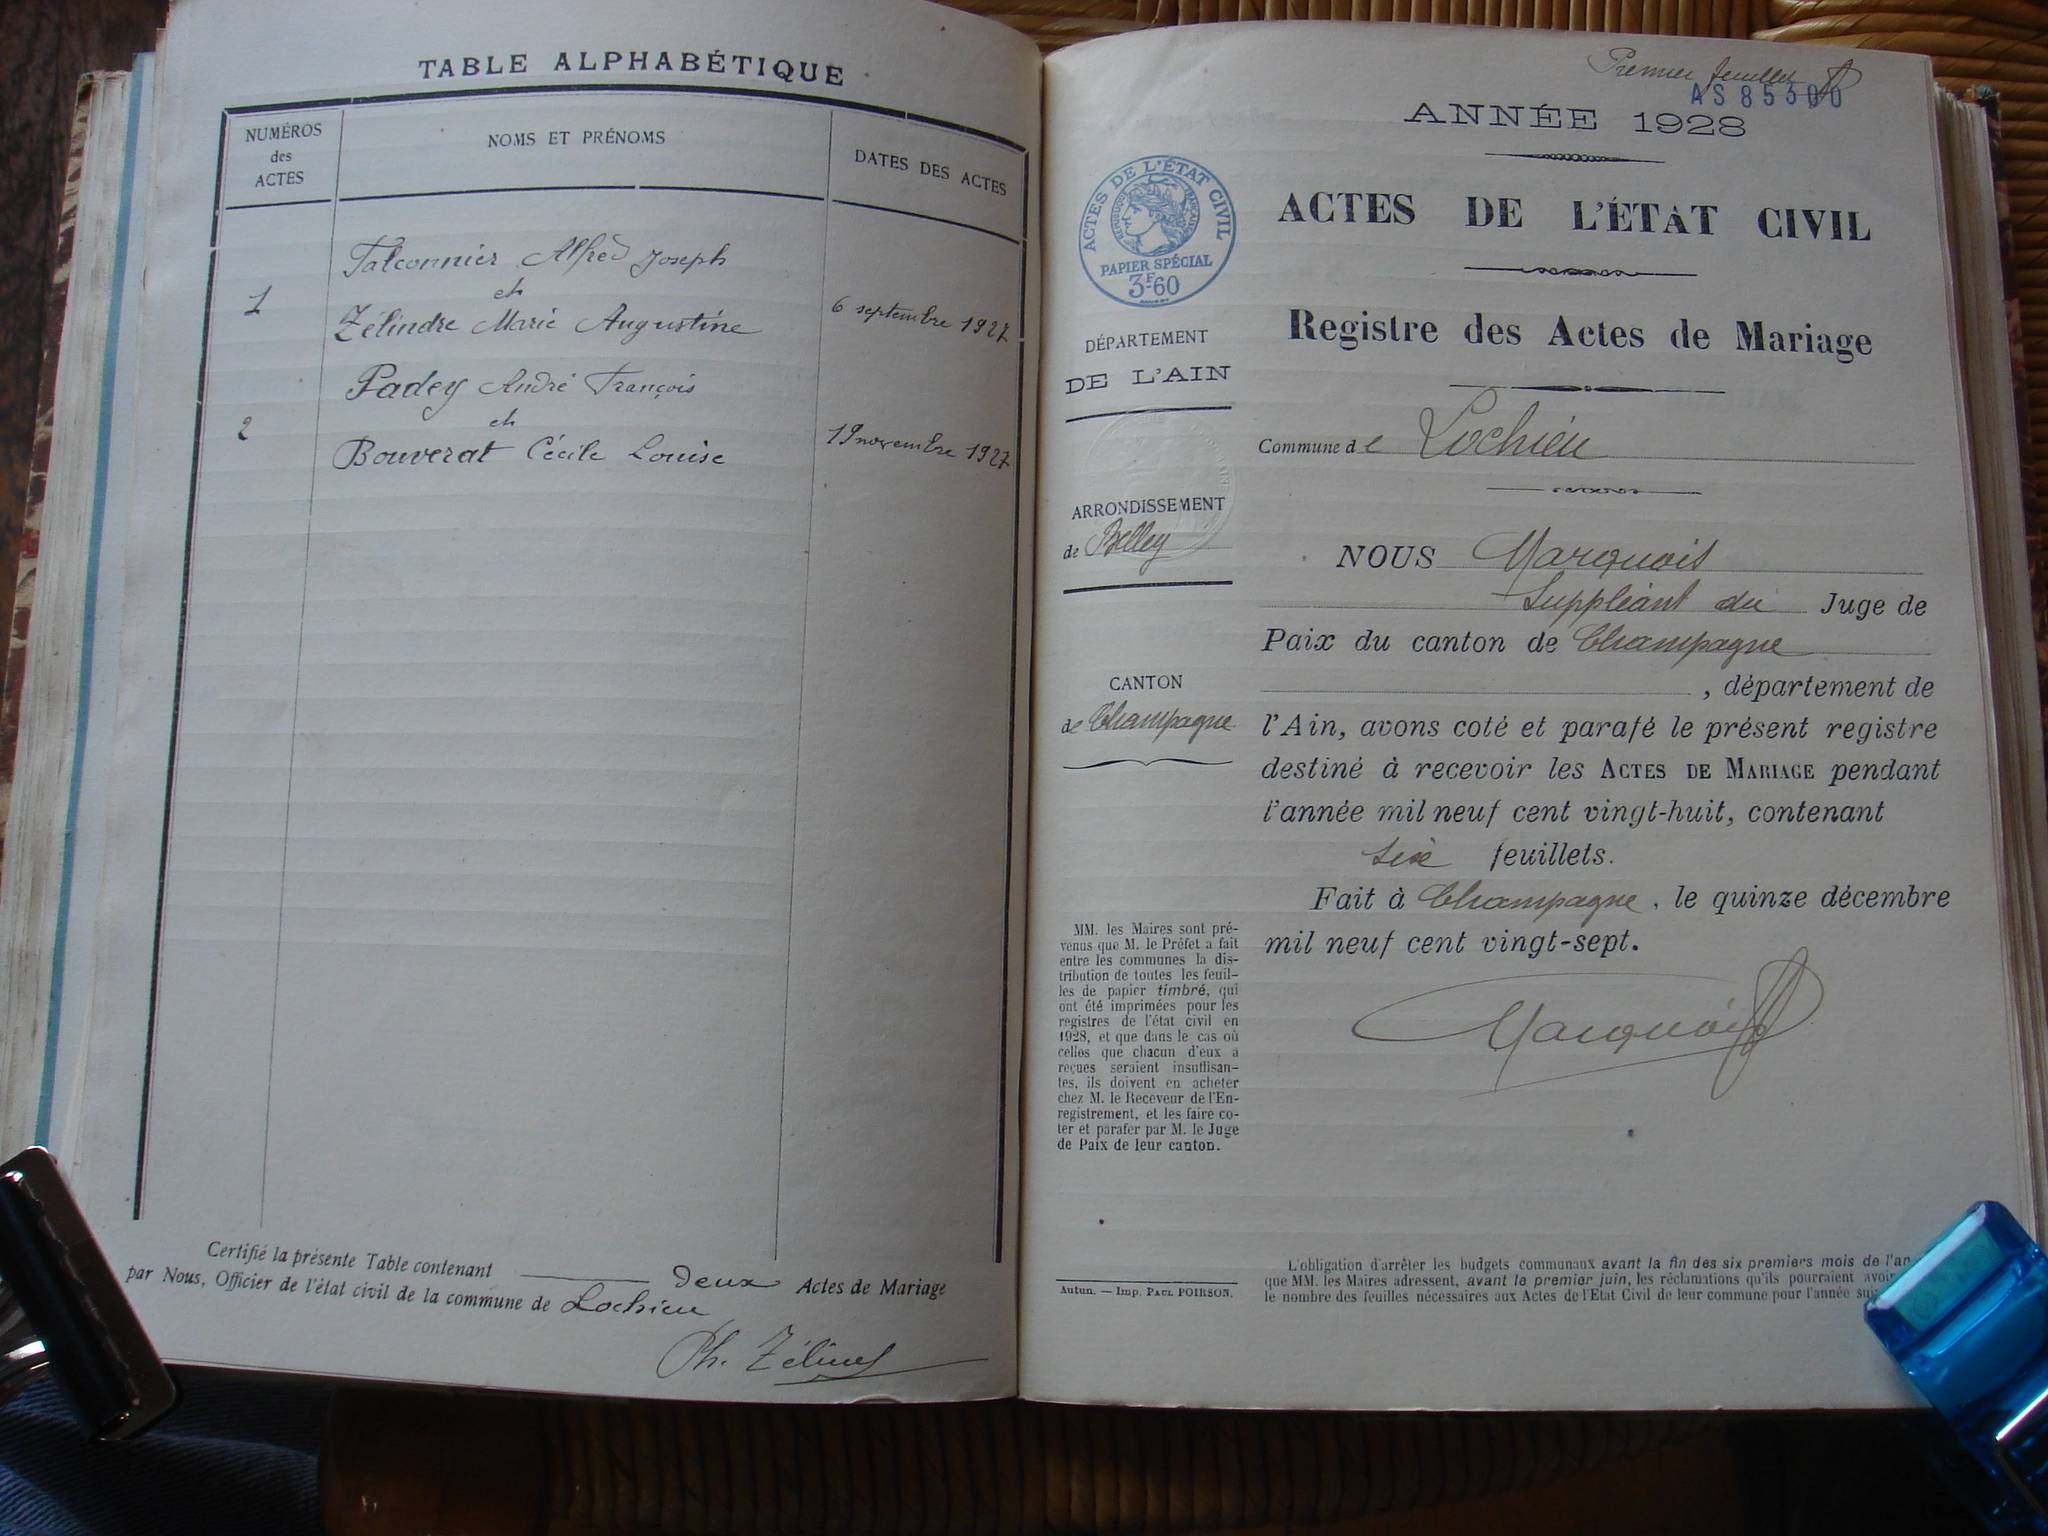 TABLE ALPHABÉTIQUE
NUMÉROS
des
ACTES
NOMS ET PRÉNOMS
DATES DES ACTES
Falconnier Alfred Joseph
et
1
Zélindre Marie Augustine
6 septembre 1927
Padey André François
et
2
Bouverat Cécile Louise
19 novembre 1927
Certifié la présente Table contenant deux Actes de Mariage
par Nous, Officier de l'état civil de la commune de Lochieu
Ph. Zélin
Premier feuillet
AS 85300
ANNÉE 1928
ACTES DE L'ÉTAT CIVIL
RÉPUBLIQUE FRANÇAISE
PAPIER SPÉCIAL
3F60
ACTES DE L'ÉTAT CIVIL
Registre des Actes de Mariage
DÉPARTEMENT
DE L'AIN
Commune de Lochieu
ARRONDISSEMENT
de Belley
CANTON
de Champagne
NOUS Marquois
Suppléant du Juge de
Paix du canton de Champagne
, département de
l'Ain, avons coté et parafé le présent registre
destiné à recevoir les ACTES DE MARIAGE pendant
l'année mil neuf cent vingt-huit, contenant
six feuillets.
Fait à Champagne, le quinze décembre
mil neuf cent vingt-sept.
Marquois
MM. les Maires sont pré-
venus que M. le Préfet a fait
entre les communes la dis-
tribution de toutes les feuil-
les de papier timbré, qui
ont été imprimées pour les
registres de l'état civil en
1928, et que dans le cas où
celles que chacun d'eux a
reçues seraient insuffisan-
tes, ils doivent en acheter
chez M. le Receveur de l'En-
registrement, et les faire co-
ter et parafer par M. le Juge
de Paix de leur canton.
Autun. — Imp. PAUL POIRSON.
L'obligation d'arrêter les budgets communaux avant la fin des six premiers mois de l'an
que MM. les Maires adressent, avant le premier juin, les réclamations qu'ils pourraient avoir
le nombre des feuilles nécessaires aux Actes de l'Etat Civil de leur commune pour l'année sui